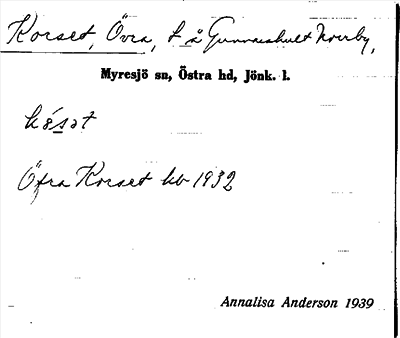 Korset, Övra, t å Gunnarshult Norrby,
Myresjö sn, Östra hd, Jönk. l.
kɔ́sət
Öfra Korset kb 1932
Annalisa Anderson 1939